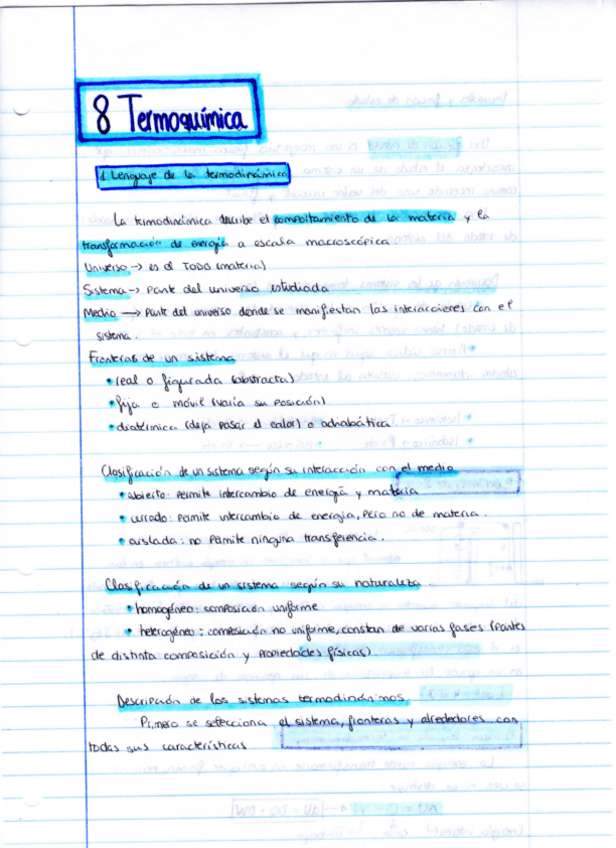 8 Termoquímica
1. Lenguaje de la termodinámica
La termodinámica describe el comportamiento de la materia y la
transformación de energía a escala macroscópica.
Universo -> es el TODO (materia)
Sistema -> Parte del universo estudiada
Medio -> Parte del universo donde se manifiestan las interacciones con el
sistema.
Fronteras de un sistema
• real o figurada (abstracta)
• fija o móvil (varía su posición)
• diatérmica (deja pasar el calor) o adiabática.
Clasificación de un sistema según su interacción con el medio
• abierto: Permite intercambio de energía y materia
• cerrado: Permite intercambio de energia, pero no de materia.
• aislada: no Permite ninguna transferencia.
Clasificación de un sistema según su naturaleza.
• homogéneo: composición uniforme
• heterogéneo: composición no uniforme, constan de varias fases (partes
de distinta composición y propiedades físicas).
Descripción de los sistemas termodinámicos.
Primero se selecciona el sistema, fronteras y alrededores con
todas sus características